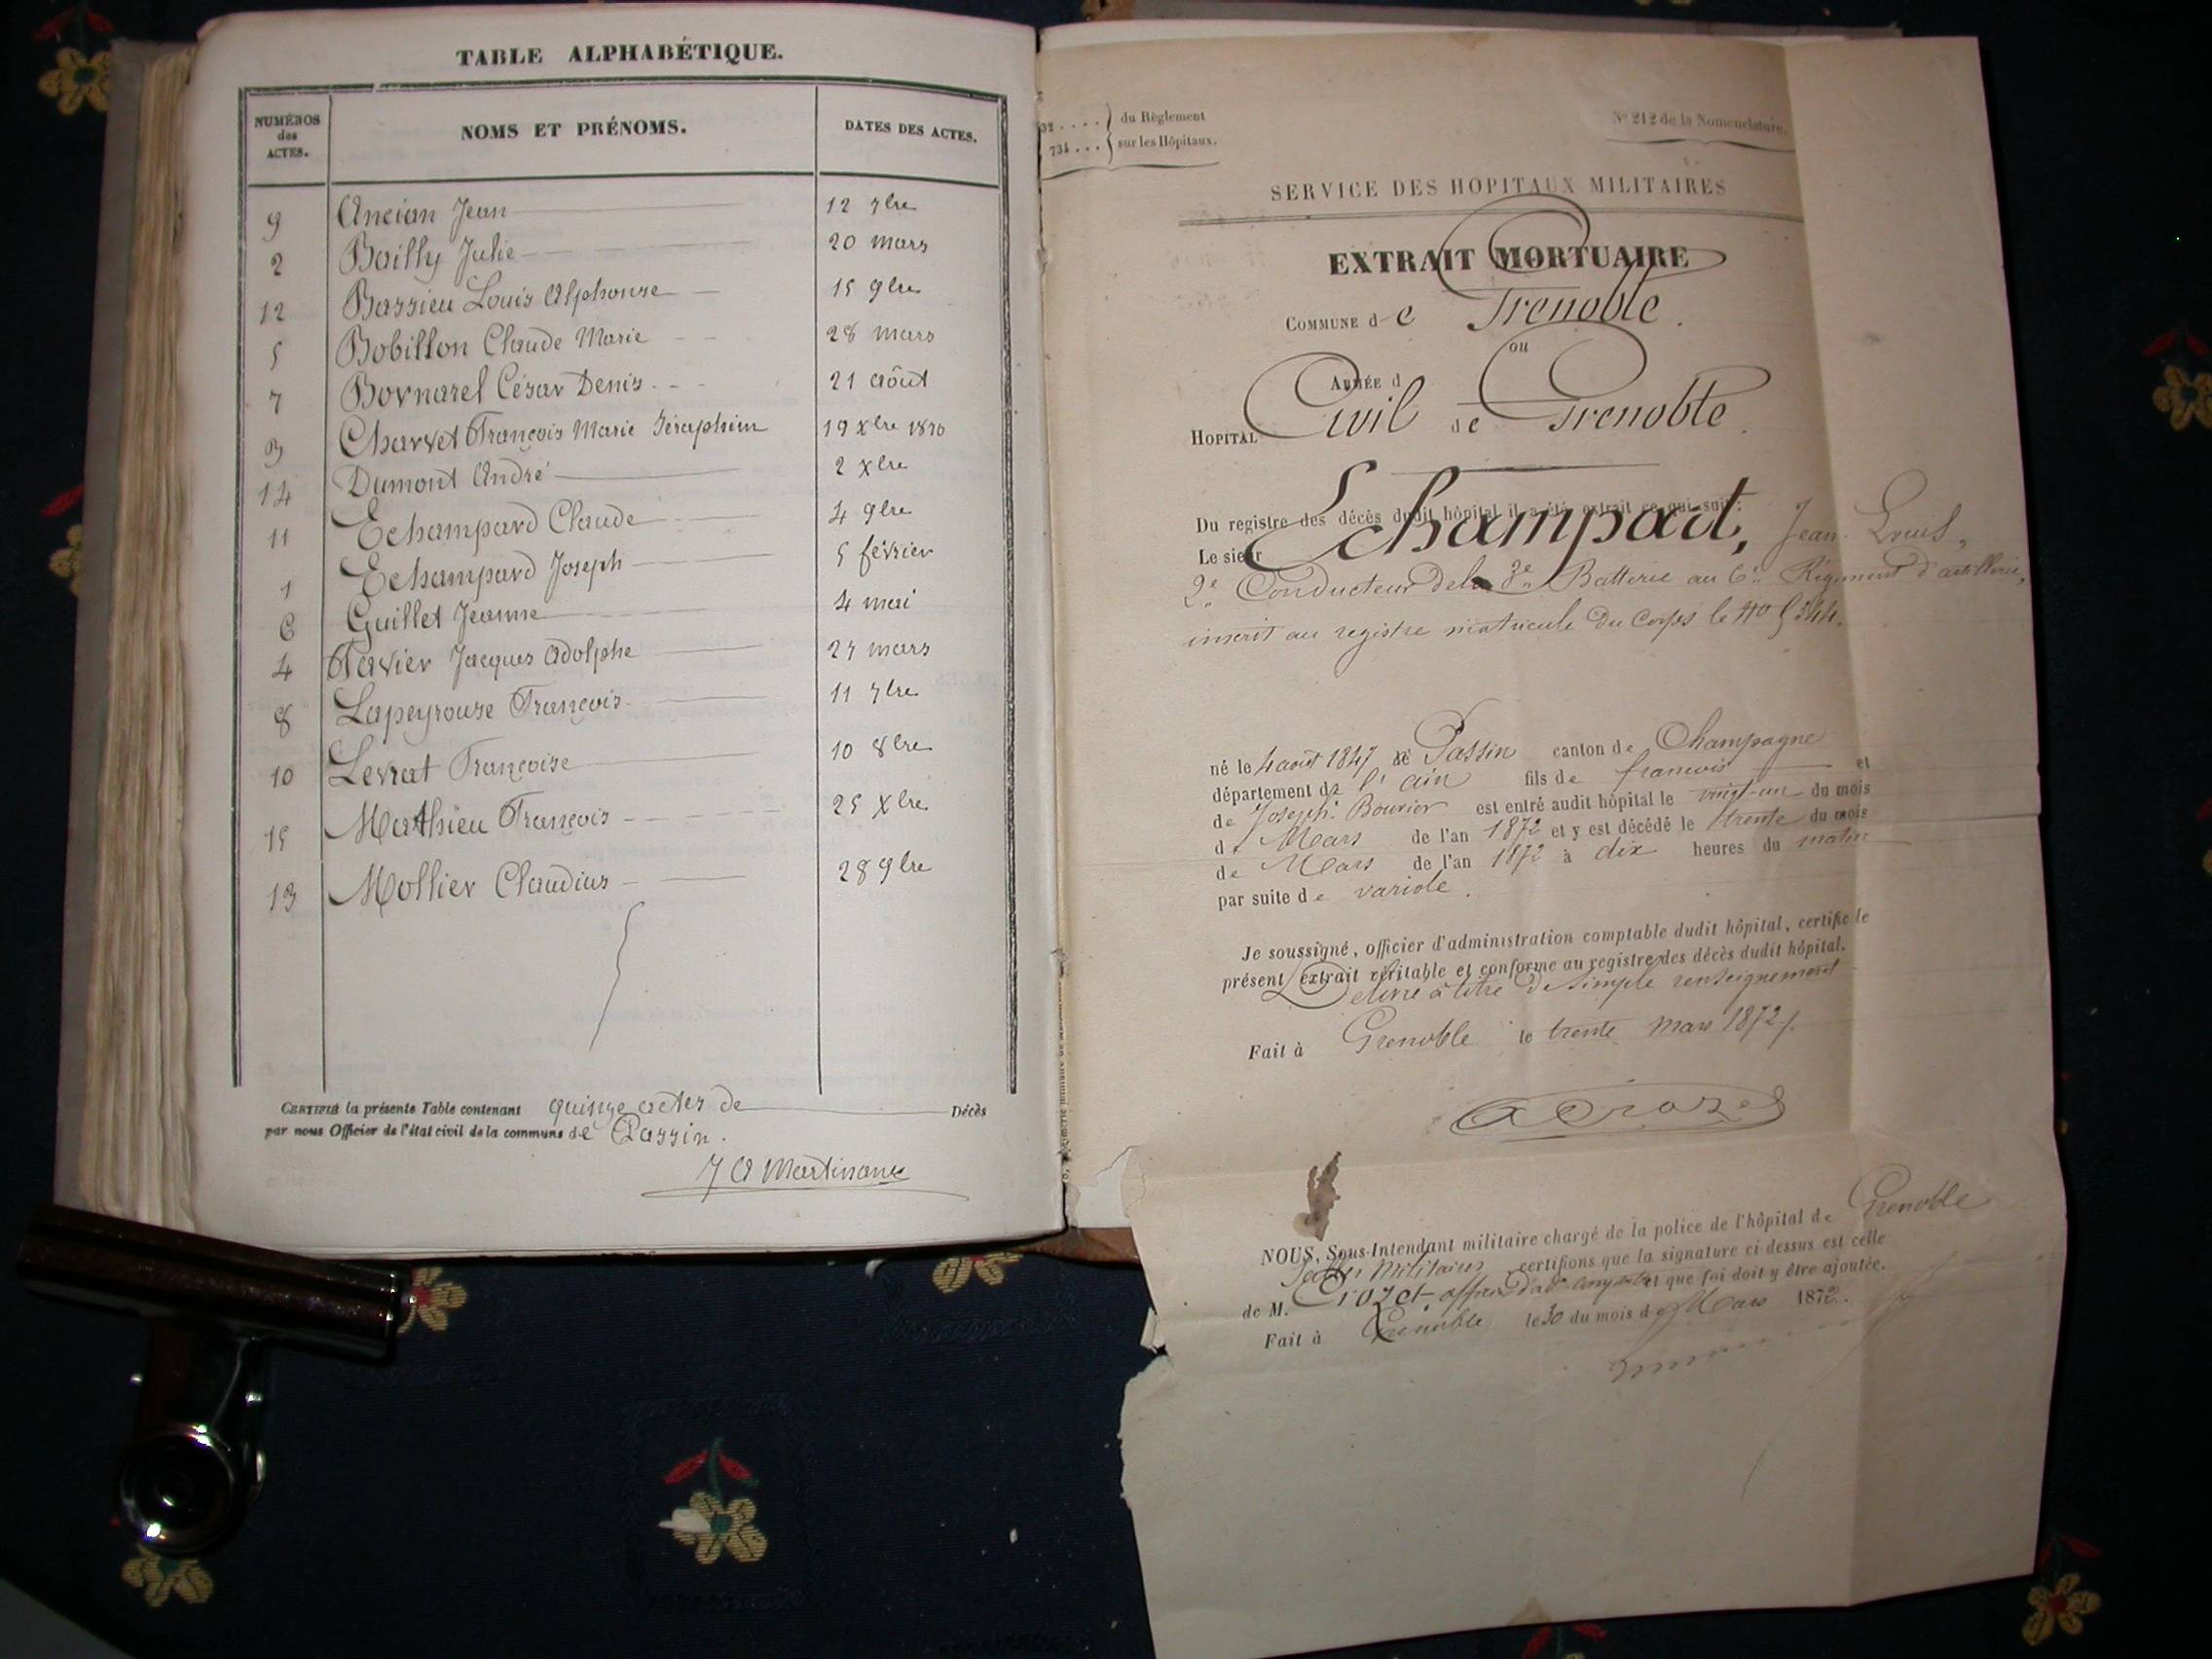 TABLE ALPHABÉTIQUE.
NUMÉROS des ACTES. NOMS ET PRÉNOMS. DATES DES ACTES.
9 Ancian Jean 12 7bre
2 Bailly Julie 20 mars
12 Bassieu Louis Alphonse 15 9bre
5 Bobillon Claude Marie 28 mars
7 Bornarel César Denis 21 août
3 Charvet François Marie Séraphim 19 xbre 1870
14 Dumont André 2 xbre
11 Echampard Claude 4 9bre
1 Echampard Joseph 5 février
6 Guillet Jeanne 4 mai
4 Jacques Adolphe 27 mars
8 Lapeyrouse François 11 7bre
10 Levrat Françoise 10 8bre
15 Mathieu François 25 xbre
13 Mollier Claudius 28 9bre
CERTIFIÉ la présente Table contenant quinze actes de Décès
par nous Officier de l'état civil de la commune de Passin.
Martinand
du Règlement
734 ... sur les Hôpitaux.
No 212 de la Nomenclature.
SERVICE DES HOPITAUX MILITAIRES
EXTRAIT MORTUAIRE
COMMUNE de Grenoble.
ou
ARMÉE d
HOPITAL Civil de Grenoble.
Du registre des décès dudit hôpital il a été extrait ce qui suit:
Le sieur Echampard, Jean Louis,
2e Conducteur de la 3e Batterie au 6e Régiment d'artillerie,
inscrit au registre matricule du Corps le No 5344.
né le 4 août 1847 à Passin canton de Champagne
département de l'ain fils de francois et
de Joseph. Bouvier est entré audit hôpital le vingt-un du mois
de Mars de l'an 1872 et y est décédé le trente du mois
de Mars de l'an 1872 à dix heures du matin
par suite de variole.
Je soussigné, officier d'administration comptable dudit hôpital, certifie le
présent extrait véritable et conforme au registre des décès dudit hôpital.
Délivré à titre de simple renseignement
Fait à Grenoble le trente mars 1872.
A Crozet
NOUS, Sous-Intendant militaire chargé de la police de l'hôpital de Grenoble
Militaires, certifions que la signature ci-dessus est celle
de M. Crozet, et que foi doit y être ajoutée.
Fait à Grenoble le 30 du mois de Mars 1872.